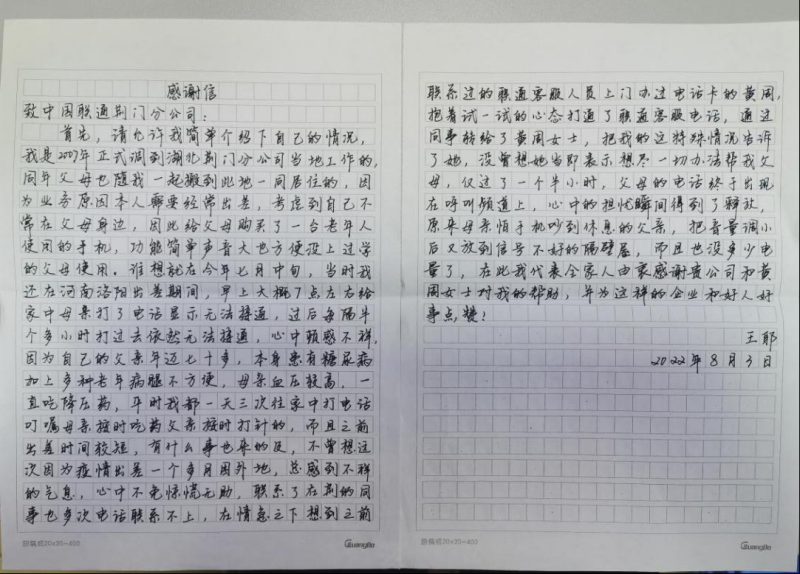 感谢信
致中国联通荆门分公司：
首先，请允许我简单介绍下自己的情况，
我是2007年正式调到湖北荆门分公司当地工作的，
同年父母也随我一起搬到此地一同居住的，因
为业务原因本人需要经常出差，考虑到自己不
常在父母身边，因此给父母购买了一台老年人
使用的手机，功能简单声音大也方便没上过学
的父母使用。谁想就在今年七月中旬，当时我
还在河南洛阳出差期间，早上大概7点左右给
家中母亲打了电话显示无法接通，过后每隔半
个多小时打过去依然无法接通，心中顿感不祥，
因为自己的父亲年迈七十多，本身患有糖尿病
加上多种老年病腿不方便，母亲血压较高，一
直吃降压药，平时我都一天三次往家中打电话
叮嘱母亲按时吃药父亲按时打针的，而且之前
出差时间较短，有什么事也来的及，不曾想这
次因为疫情出差一个多月困外地，总感到不祥
的气息，心中不免惊慌无助，联系了在荆的同
事也多次电话联系不上，在情急之下想到之前
联系过的联通客服人员上门办过电话卡的黄周，
抱着试一试的心态打通了联通客服电话，通过
同事转给了黄周女士，把我的这特殊情况告诉
了她，没曾想她当即表示想尽一切办法帮我父
母，仅过了一个半小时，父母的电话终于出现
在呼叫频道上，心中的担忧瞬间得到了释放，
原来母亲怕手机吵到休息的父亲，把音量调小
后又放到信号不好的隔壁屋，而且也没多少电
量了，在此我代表全家人由衷感谢贵公司和黄
周女士对我的帮助，并为这样的企业和好人好
事点赞！
王耶
2022年8月3日
20×20=400
Guangbo
20×20=400
Guangbo